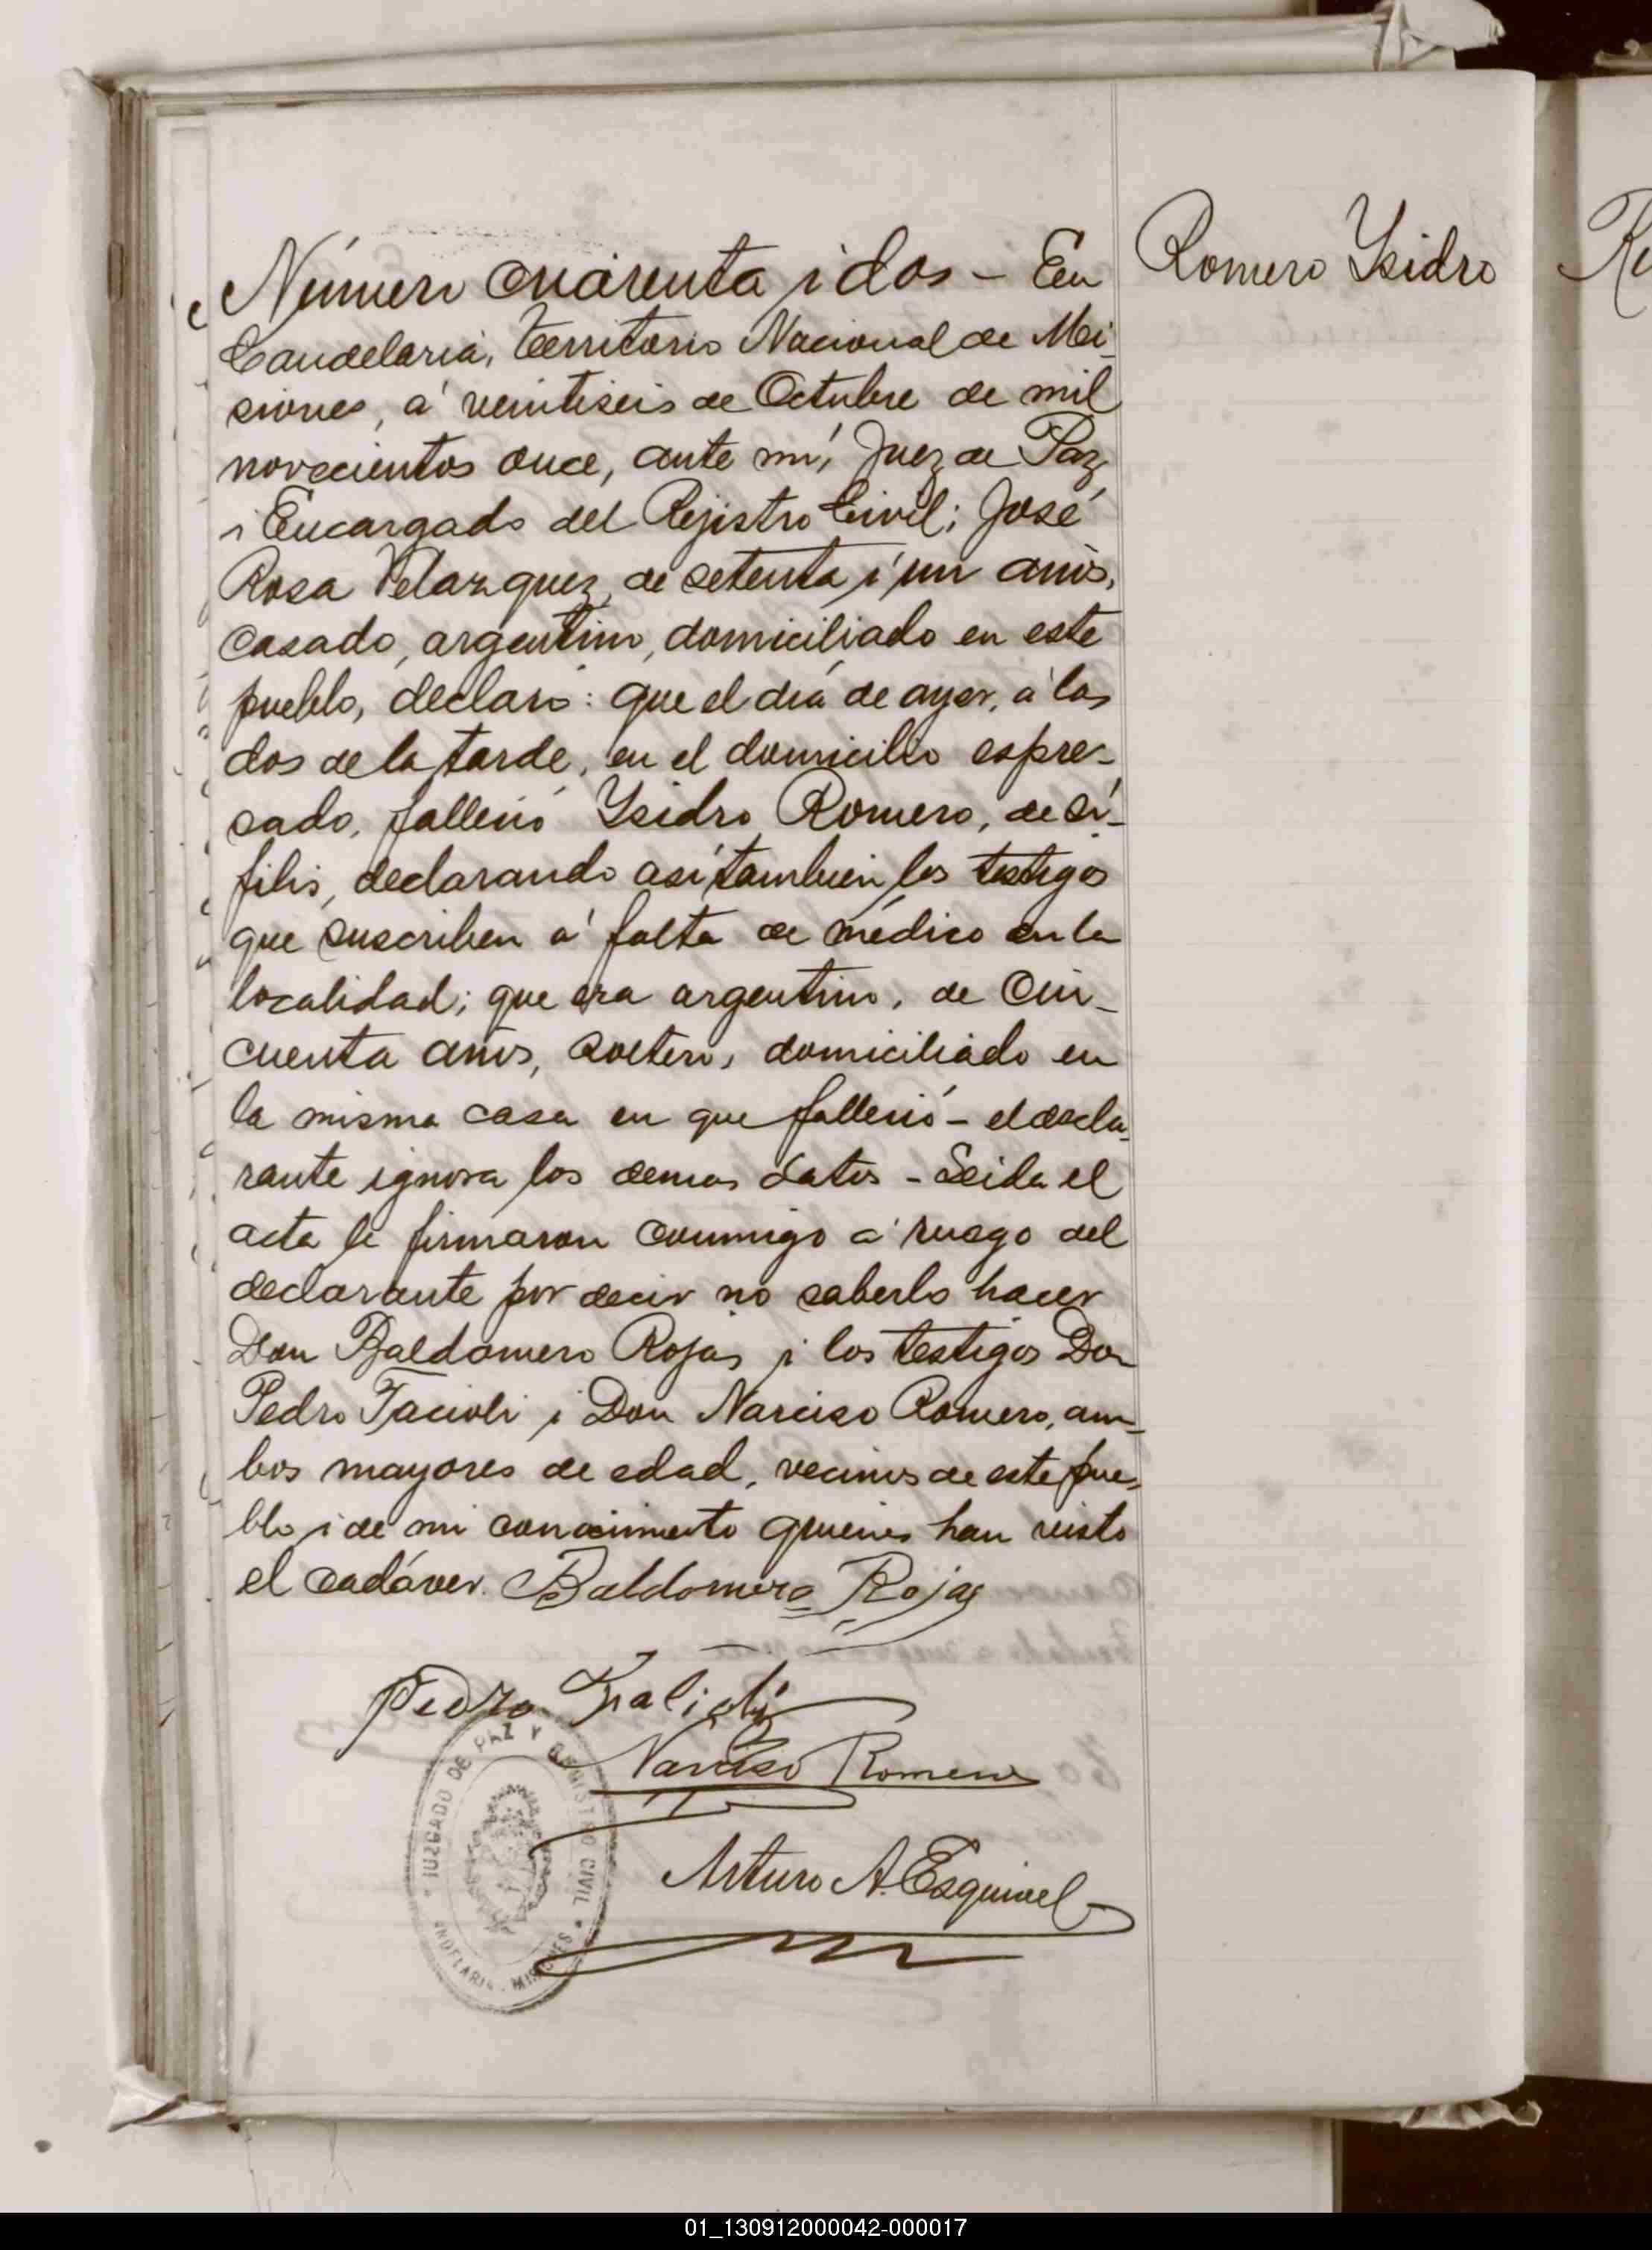 Número cuarenta i dos - En
Romero Ysidro
Candelaria, territorio Nacional de Mi-
siones, á veintiseis de Octubre de mil
novecientos once, ante mí, Juez de Paz
i Encargado del Rejistro Civil; José
Rosa Velazquez, de setenta i un años,
casado, argentino, domiciliado en este
pueblo, declaró: que el día de ayer, á las
dos de la tarde, en el domicilio espre-
sado, falleció Ysidro Romero, de sí-
filis, declarando así tambien los testigos
que suscriben á falta de médico en la
localidad; que era argentino, de cin-
cuenta años, soltero, domiciliado en
la misma casa en que falleció - el decla-
rante ignora los demas datos - Leida el
acta la firmaron conmigo á ruego del
declarante por decir no saberlo hacer
Don Baldomero Rojas i los testigos Don
Pedro Facioli i Don Narciso Romero, am-
bos mayores de edad, vecinos de este pue-
blo i de mi conocimiento quienes han visto
el cadáver. Baldomero Rojas
Pedro
Narciso Romero
Arturo A. Esquivel
JUZGADO DE PAZ Y REGISTRO CIVIL
CANDELARIA - MISIONES
01_130912000042-000017